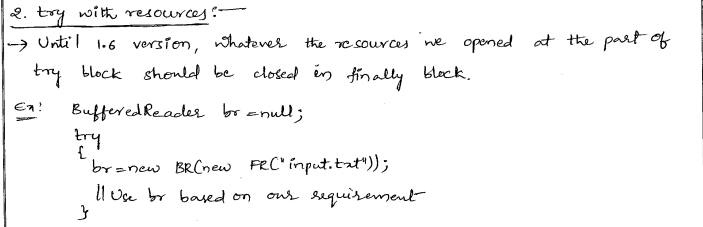 2. try with resources:-
→ Until 1.6 version, whatever the resources we opened at the part of
try block should be closed in finally block.
Ex: BufferedReader br = null;
try
{
br = new BR(new FR("input.txt"));
// Use br based on our requirement
}